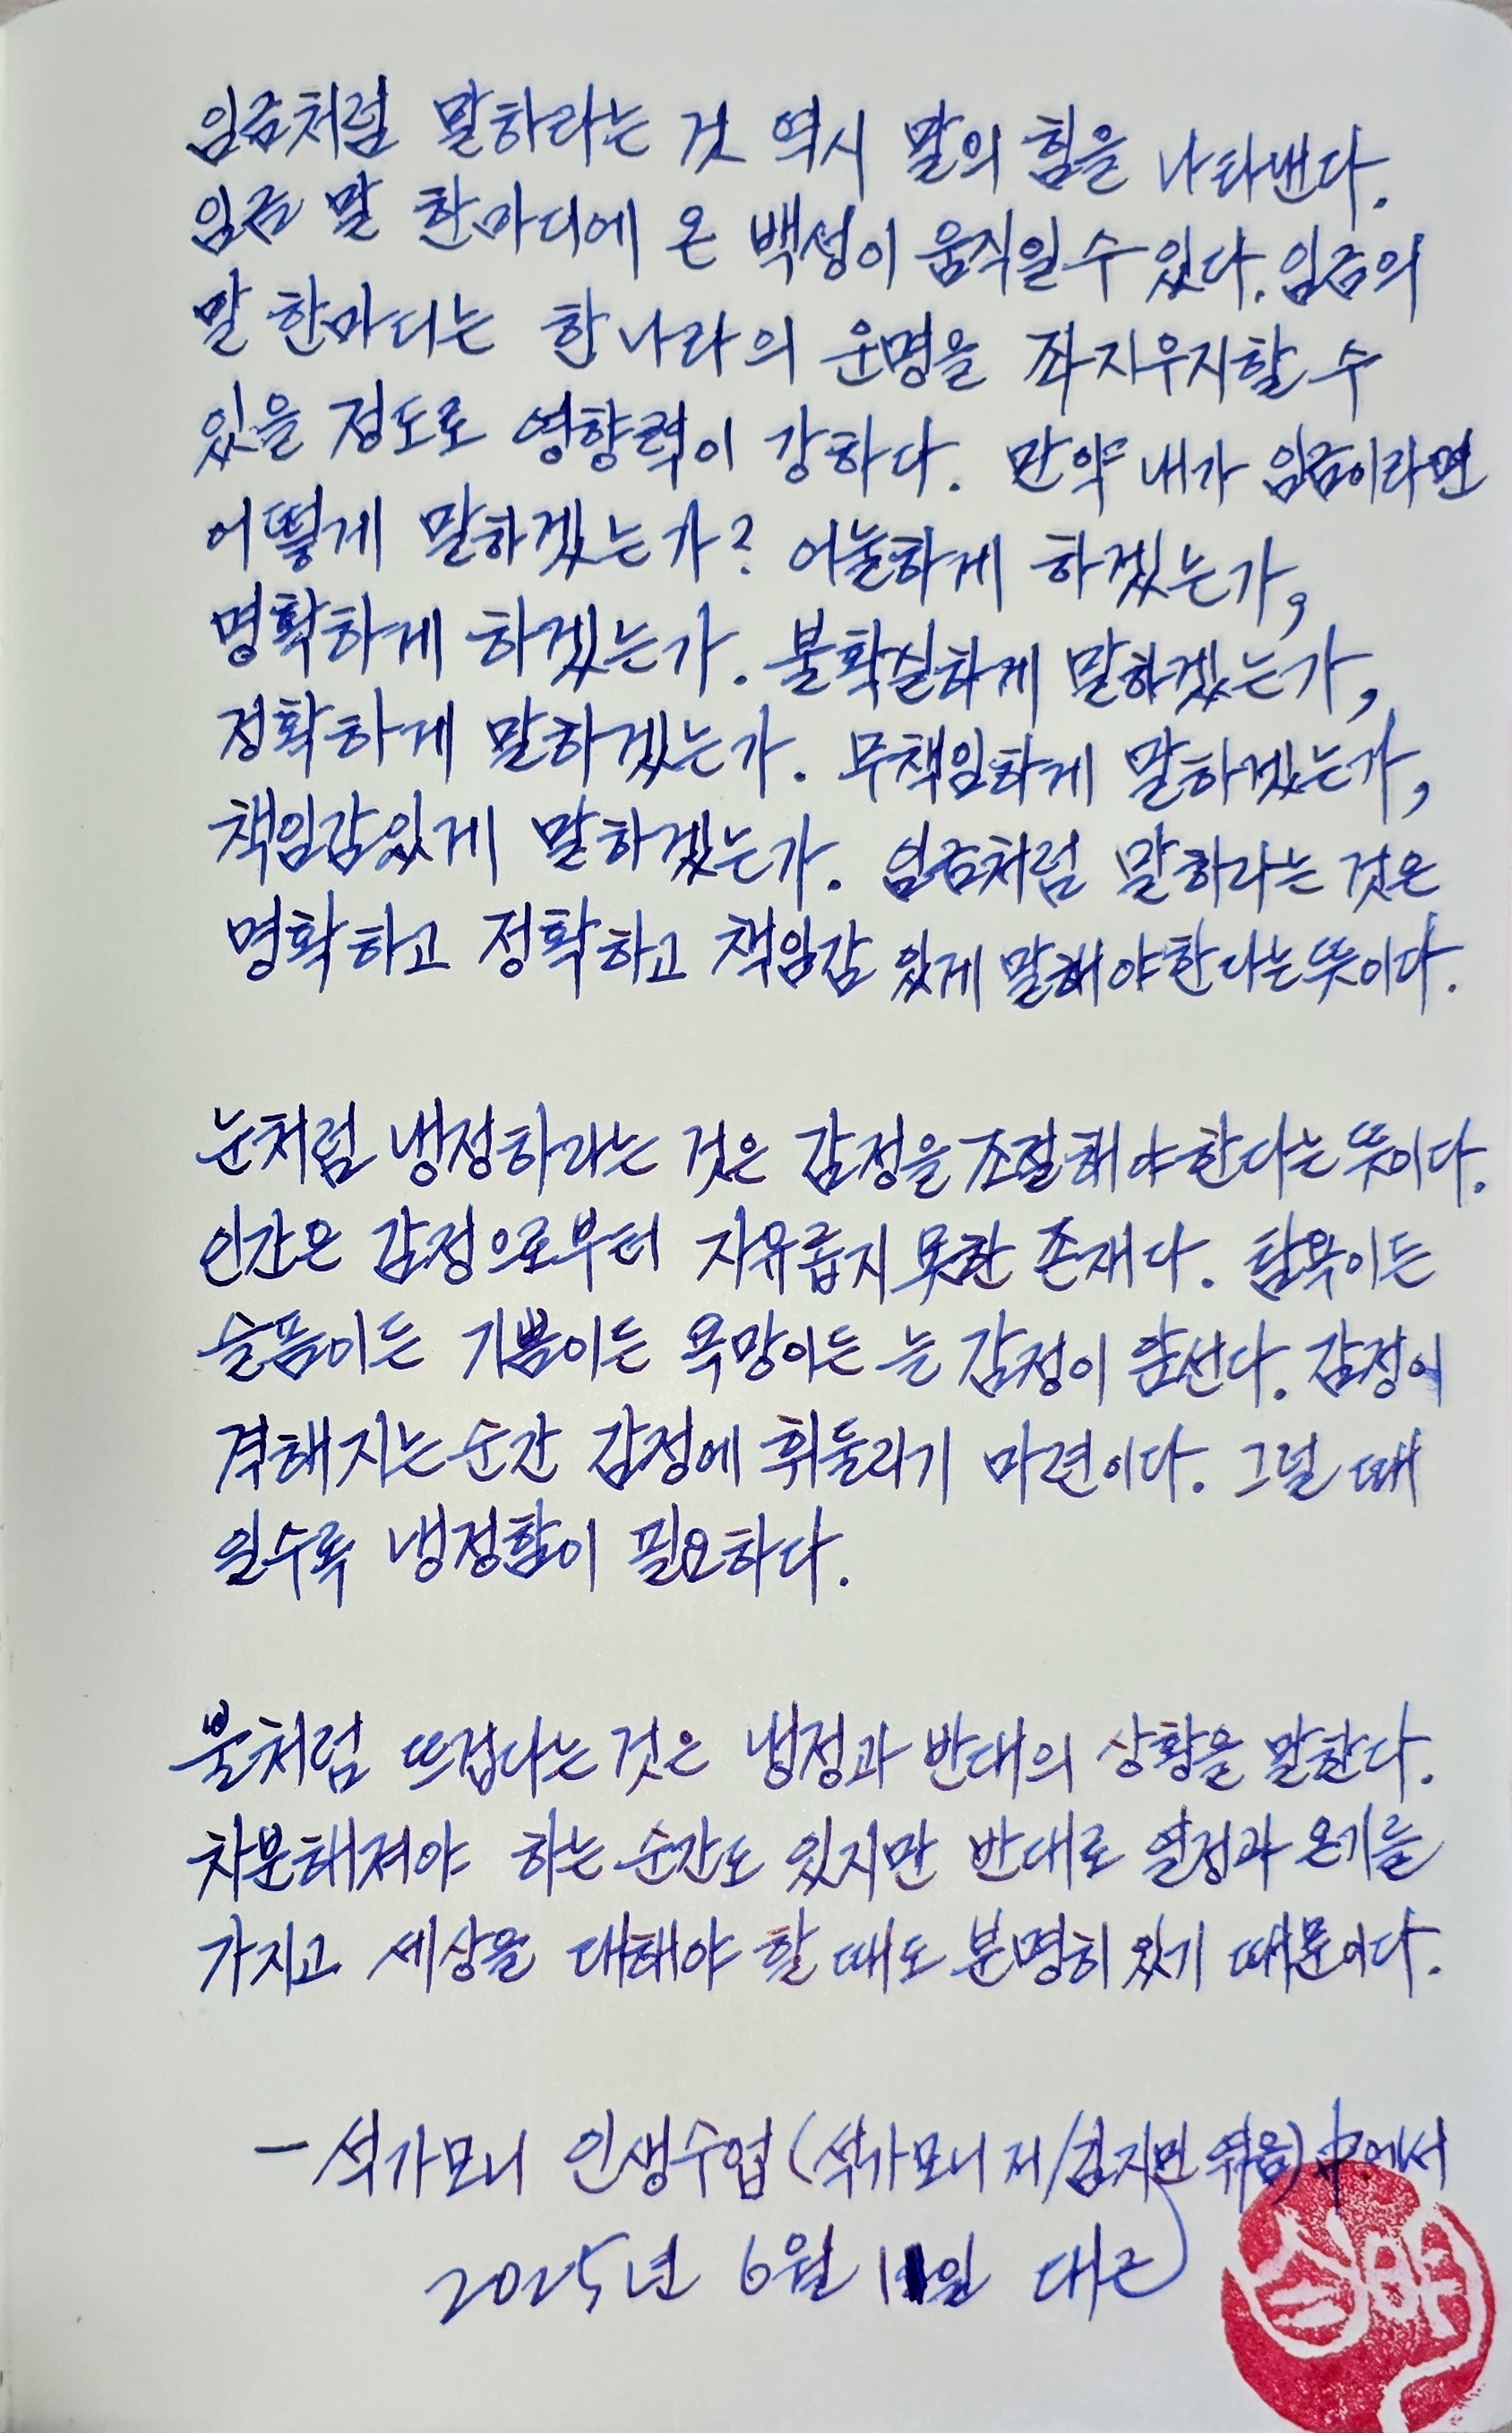 임금처럼 말하라는 것 역시 말의 힘을 나타낸다.
임금 말 한마디에 온 백성이 움직일 수 있다. 임금의
말 한마디는 한 나라의 운명을 좌지우지할 수
있을 정도로 영향력이 강하다. 만약 내가 임금이라면
어떻게 말하겠는가? 어눌하게 하겠는가,
명확하게 하겠는가. 불확실하게 말하겠는가,
정확하게 말하겠는가. 무책임하게 말하겠는가,
책임감있게 말하겠는가. 임금처럼 말하라는 것은
명확하고 정확하고 책임감 있게 말해야한다는 뜻이다.
눈처럼 냉정하라는 것은 감정을 조절해야한다는 뜻이다.
인간은 감정으로부터 자유롭지 못한 존재다. 탐욕이든
슬픔이든 기쁨이든 욕망이든 늘 감정이 앞선다. 감정이
격해지는 순간 감정에 휘둘리기 마련이다. 그럴 때
일수록 냉정함이 필요하다.
불처럼 뜨겁다는 것은 냉정과 반대의 상황을 말한다.
차분해져야 하는 순간도 있지만 반대로 열정과 온기를
가지고 세상을 대해야 할 때도 분명히 있기 때문이다.
- 석가모니 인생수업 (석가모니 저/김지민 엮음) 中에서
2025년 6월 11일 대근